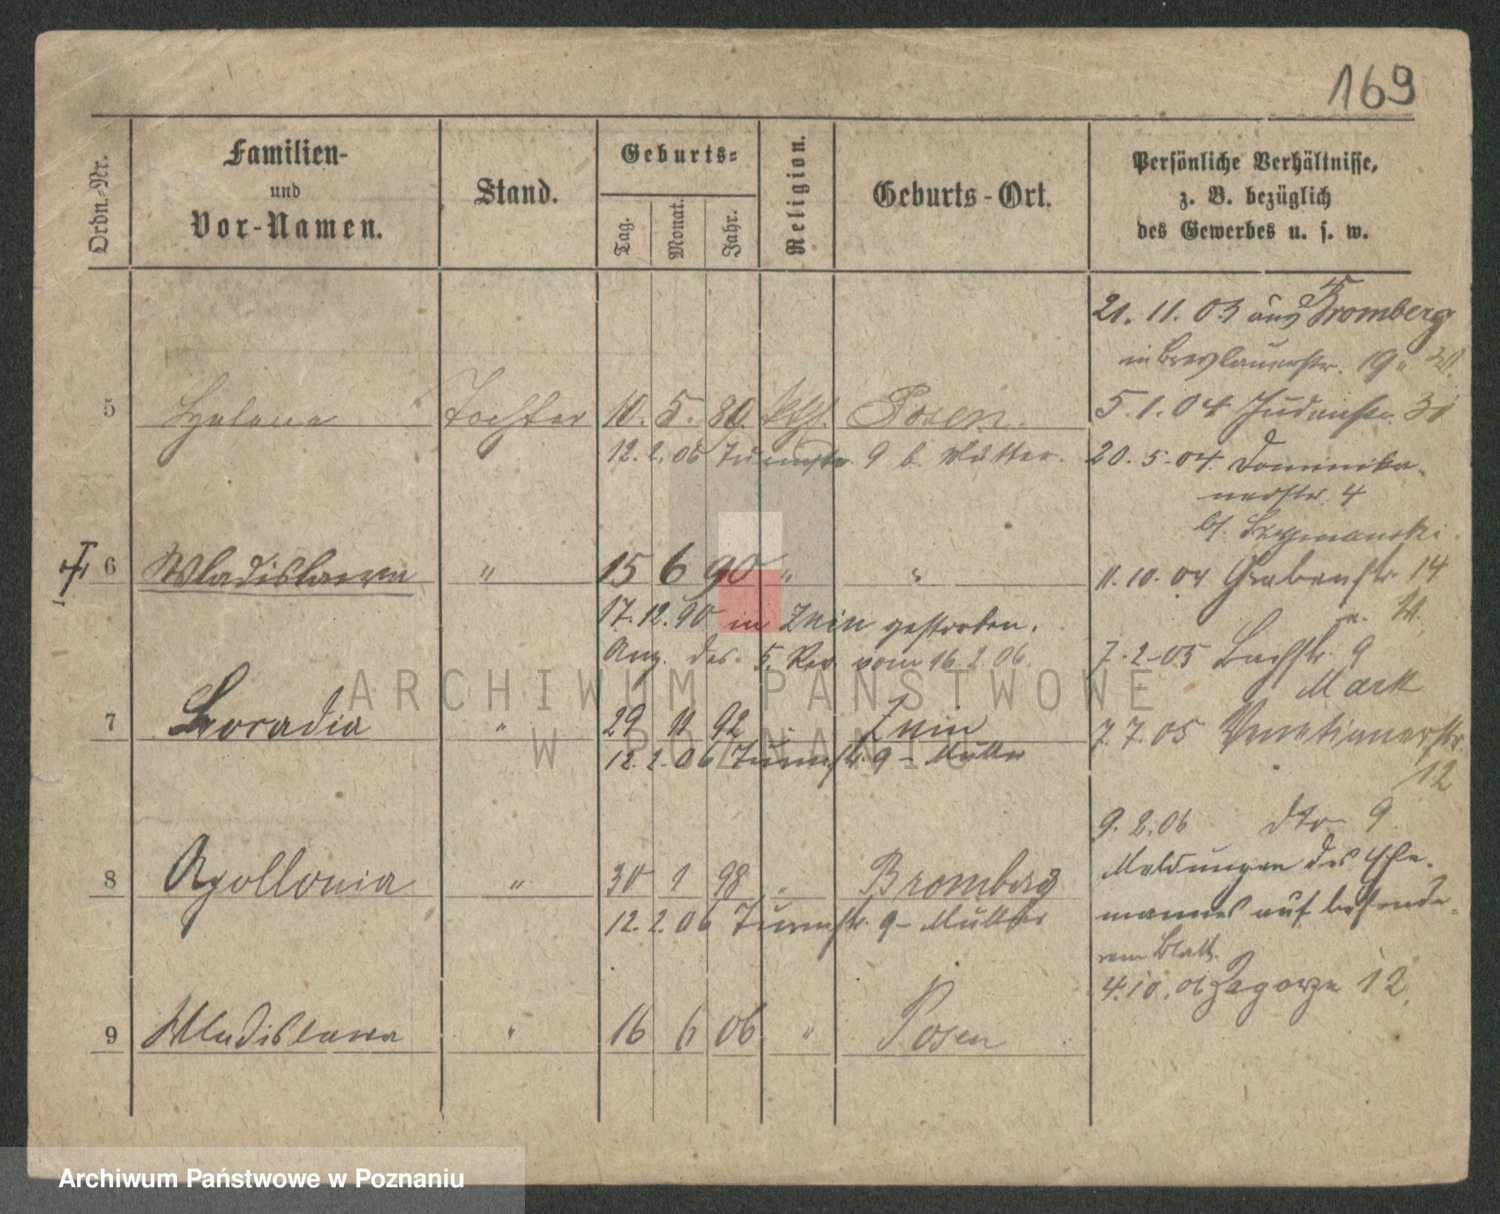 169
Ordn.-Nr.
Familien-
und
Vor-Namen.
Stand.
Geburts-
Tag.
Monat.
Jahr.
Religion.
Geburts-Ort.
Persönliche Verhältnisse,
z. B. bezüglich
des Gewerbes u. s. w.
21. 11. 03 aus Bromberg
in Breslauerstr. 19
5 Helene Tochter 10. 5. 89. kth. Posen.
12. 2. 06 Turmstr. 9 b. Mutter.
5. 1. 04 Judenstr. 31
20. 5. 04. Dominika-
nerstr. 4
bf. Szymanski.
6 Wladislawa " 15 6 90 " "
17. 12. 90 in Znin gestorben.
Anz. des 5. Rev vom 16. 2. 06.
11. 10. 04 Grabenstr. 14
7. 2. 05 Bachstr. 9
Mark
7 Leocadia " 29 11 92 " Znin
12. 2. 06 Turmstr. 9 - Mutter
7. 7. 05 Venetianerstr.
12
9. 2. 06 dto 9
Meldungen des Ehe-
mannes auf besonde-
rem Blatt.
8 Apollonia " 30 1 98 " Bromberg
12. 2. 06 Turmstr. 9 - Mutter
4. 10. 06 Zagorze 12
9 Wladislawa " 16 6 06 " Posen
ARCHIWUM PAŃSTWOWE
W POZNANIU
Archiwum Państwowe w Poznaniu